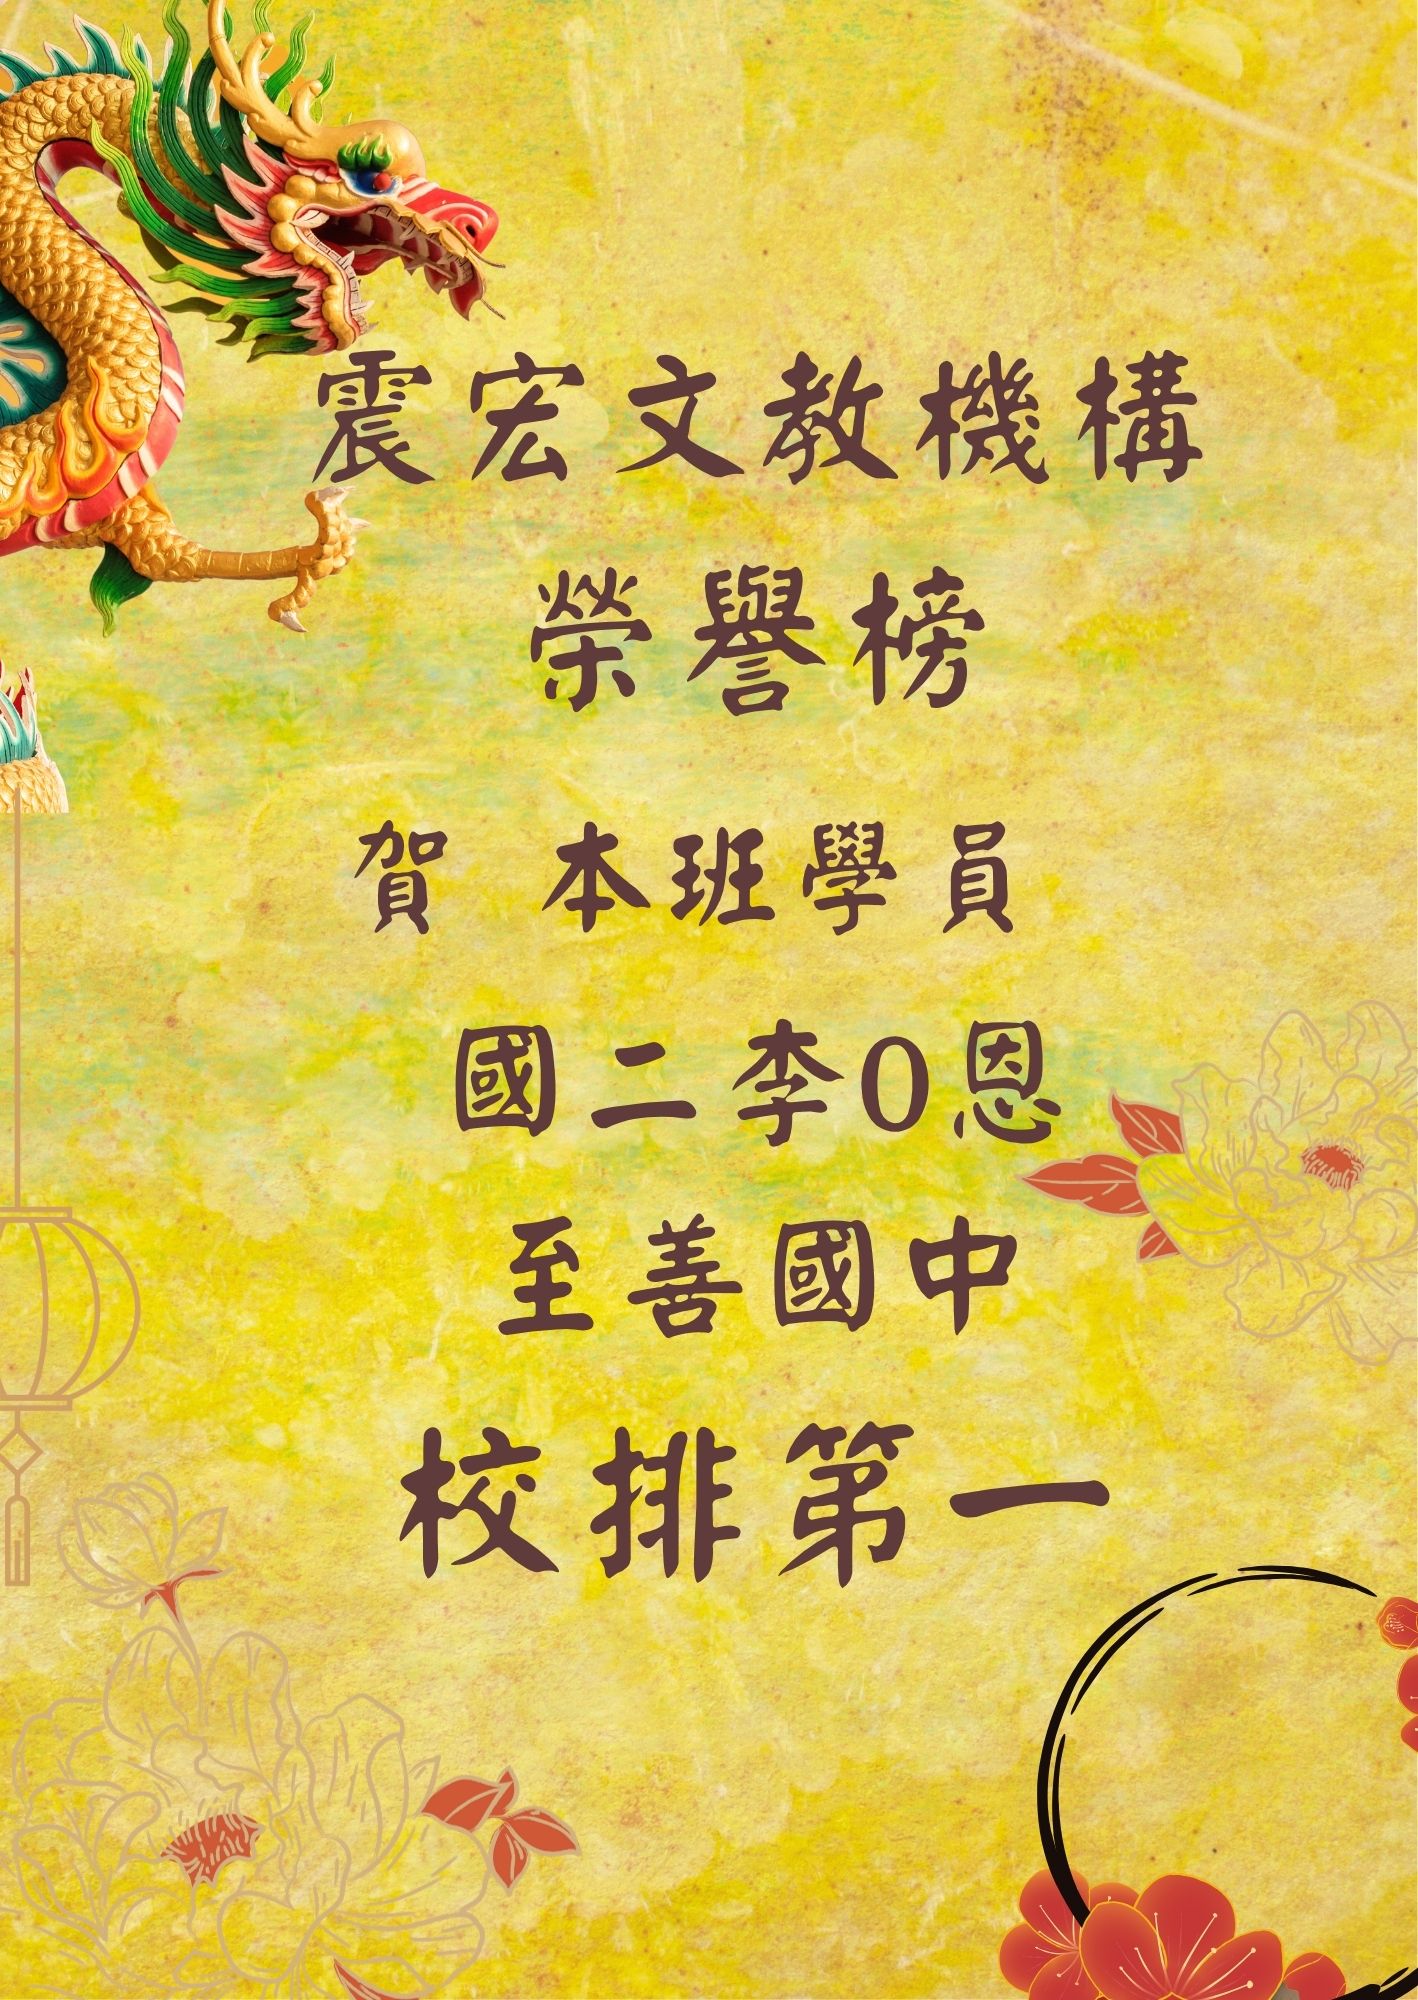 震宏文教機構
榮譽榜
賀 本班學員
國二李O恩
至善國中
校排第一